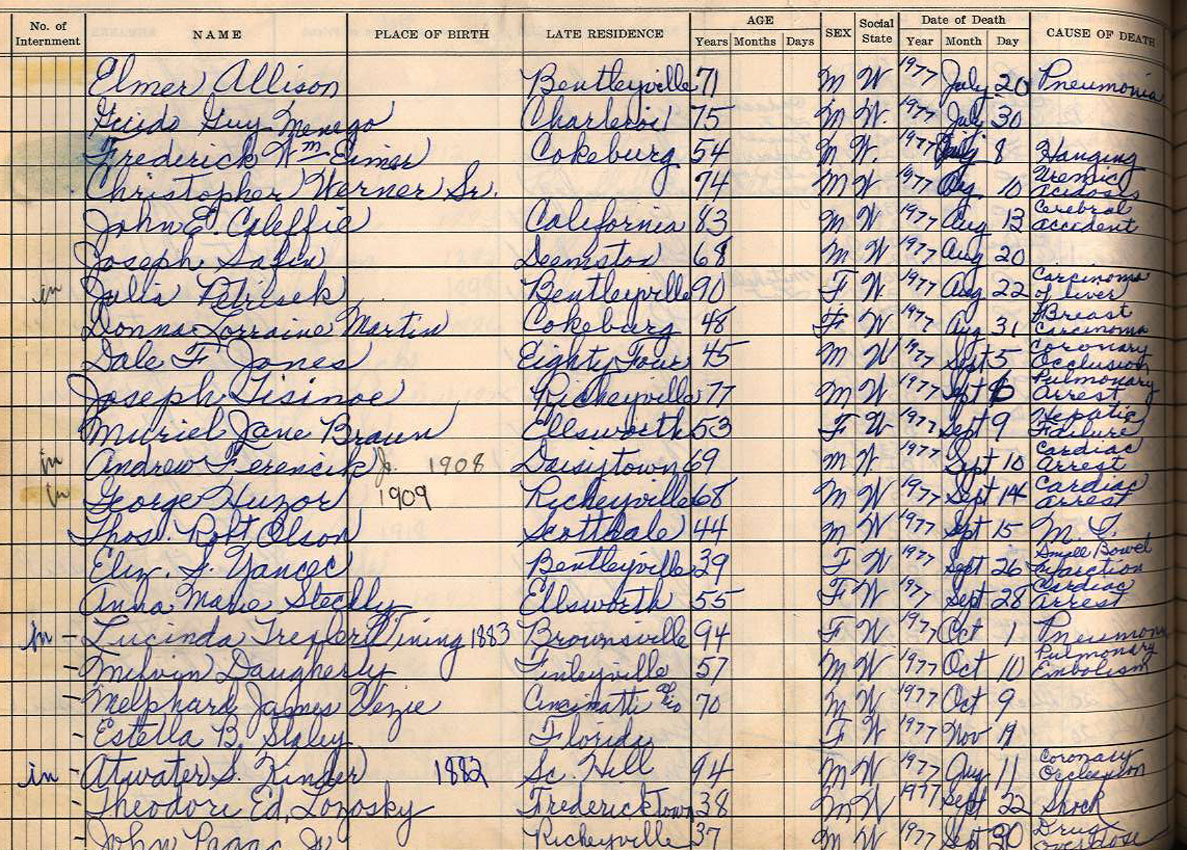 No. of Internment NAME PLACE OF BIRTH LATE RESIDENCE AGE Years Months Days SEX Social State Date of Death Year Month Day CAUSE OF DEATH
Elmer Allison Bentleyville 71 M W 1977 July 20 Pneumonia
Guido Guy Menego Charleroi 75 M W. 1977 July 30
Frederick Wm Eimer Cokeburg 54 M W. 1977 July 8 Hanging
Christopher Werner Sr. 74 M W 1977 Aug 10 Uremic Acidosis
John E. Caleffie California 83 M W 1977 Aug 13 Cerebral accident
Joseph Safin Deemston 68 M W 1977 Aug 20
in Julia Bentleyville 90 F W. 1977 Aug 22 Carcinoma of liver
Donna Lorraine Martin Cokeburg 48 F W 1977 Aug 31 Breast Carcinoma
Dale F Jones Eighty Four 45 M W 1977 Sept 5 Coronary Occlusion
Joseph Sisinoe Richeyville 77 M W 1977 Sept 6 Pulmonary Arrest
Muriel Jane Braun Ellsworth 53 F W 1977 Sept 9 Hepatic Failure
in Andrew Ferencik Jr. 1908 Daisytown 69 M W. 1977 Sept 10 Cardiac Arrest
in George Huzor 1909 Richeyville 68 M W 1977 Sept 14 Cardiac arrest
Thos. Robt Olson Scottdale 44 M W 1977 Sept 15 M. I.
Eliz. F. Yancec Bentleyville 39 F W 1977 Sept 26 Small Bowel
Anna Marie Steckly Ellsworth 55 F W 1977 Sept 28 Cardiac Arrest
in - Lucinda Trepler Vining 1883 Brownsville 94 F W 1977 Oct 1 Pneumonia
- Melvyn Daugherty Finleyville 57 M W 1977 Oct 10 Pulmonary Embolism
- Melphard James Vezie Cincinatti Oio 70 M W 1977 Oct 9
- Estella B Staley Florida F W 1977 Nov
in - Atwater S. Kinder 1882 Sc. Hill 94 M W 1977 Aug 11 Coronary Occlusion
- Theodore Ed. Lozosky Fredericktown 38 M W 1977 Sept 22 Shock
- John Jr Richeyville 37 M W 1977 Sept 30 Drug overdose